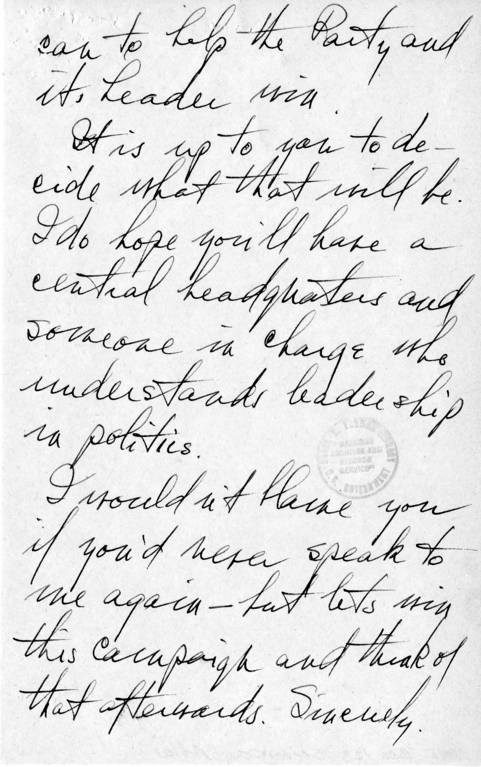 can to help the Party and
its leader win.
It is up to you to de-
cide what that will be.
I do hope you'll have a
central headquaters and
someone in charge who
understands leadership
in politics.
I wouldn't blame you
if you'd never speak to
me again - but lets win
this campaign and think of
that afterwards. Sincerely.
HARRY S. TRUMAN LIBRARY
NATIONAL
ARCHIVES AND
RECORDS
SERVICE
U.S. GOVERNMENT